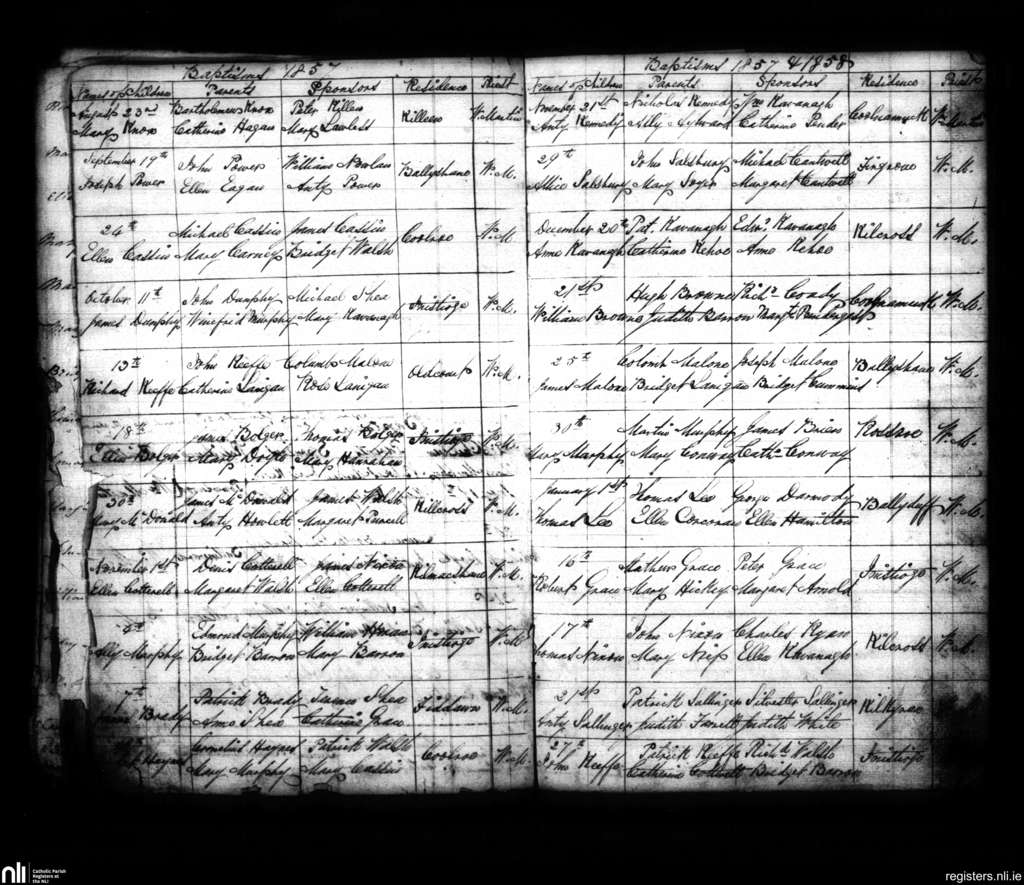 Baptisms 1857
Names of Children Parents Sponsors Residence Priest
August 23rd Bartholomew Knox Peter Killeen Killeen W. Martin
Mary Knox Catherine Hagan Mary Lawless
September 19th John Power William Nowlan Ballyshane W. M.
Joseph Power Ellen Eagan Anty Power
24th Michael Cassin James Cassin Coolroe W. M.
Ellen Cassin Mary Carney Bridget Walsh
October 11th John Dunphy Michael Shea Inistioge W. M.
James Dunphy Winefrid Murphy Mary Kavanagh
13th John Keeffe Columb Malone Oldcourt W. M.
Richard Keeffe Catherine Lanigan Rose Lanigan
18th James Bolger Thomas Bolger Inistioge W. M.
Ellen Bolger Mary Doyle Mary Hanrahan
30th James McDonald James Walsh Kilcross W. M.
James McDonald Anty Howlett Margaret Purcell
November 1st Denis Cotterell James Nixon Kilmacshane W. M.
Ellen Cotterell Margaret Walsh Ellen Cotterell
4th Edmond Murphy William Inistioge W. M.
Ally Murphy Bridget Barron Mary Barron
7th Patrick Brady James Shea Fiddawn W. M.
Brady Anne Shea Catherine Grace
Cornelius Haynes Patrick Walsh Coolroe W. M.
Haynes Mary Murphy Mary Cassin
Baptisms 1857 & 1858
Names of Children Parents Sponsors Residence Priest
November 21st Nicholas Kennedy Wm Kavanagh Coolnamuck W. Martin
Anty Kennedy Ally Aylward Catherine Pender
29th John Salsbury Michael Cantwell Firgrove W. M.
Allie Salsbury Mary Margaret Cantwell
December 20th Pat. Kavanagh Edwd. Kavanagh Kilcross W. M.
Anne Kavanagh Catherine Kehoe Anne Kehoe
21st Hugh Browne Richd. Coady Coolnamuck W. M.
William Browne Judith Barron Margt. Prendergast
25th Colomb Malone Joseph Malone Ballyshane W. M.
James Malone Bridget Lanigan Bridget Cummins
30th Martin Murphy James Brien Roddane W. M.
Mary Murphy Mary Conway Cath. Conway
January 1st Thomas Lee George Darmody Ballyduff W. M.
Thomas Lee Ellen Corcoran Ellen Hamilton
16th Mathew Grace Peter Grace Inistioge W. M.
Robert Grace Mary Hickey Margaret Arnold
17th John Nixon Charles Ryan Kilcross W. M.
Thomas Nixon Mary Ellen Kavanagh
21st Patrick Sallinger Silvester Sallinger Kilkyran W. M.
Anty Sallinger Judith Farrell Judith White
27th Patrick Keeffe Richd. Walsh Inistioge
John Keeffe Catherine Cottrell Bridget Barron
nli
Catholic Parish
Registers at
the NLI
registers.nli.ie